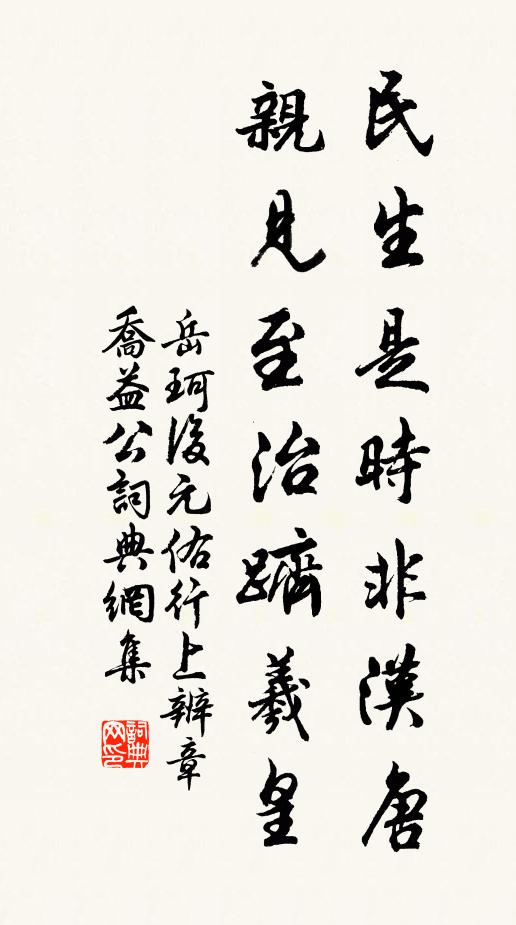 民生是時非漢唐
親見至治躋羲皇
岳珂後元佑行上辨章
喬益公詞典網集
詞典網印